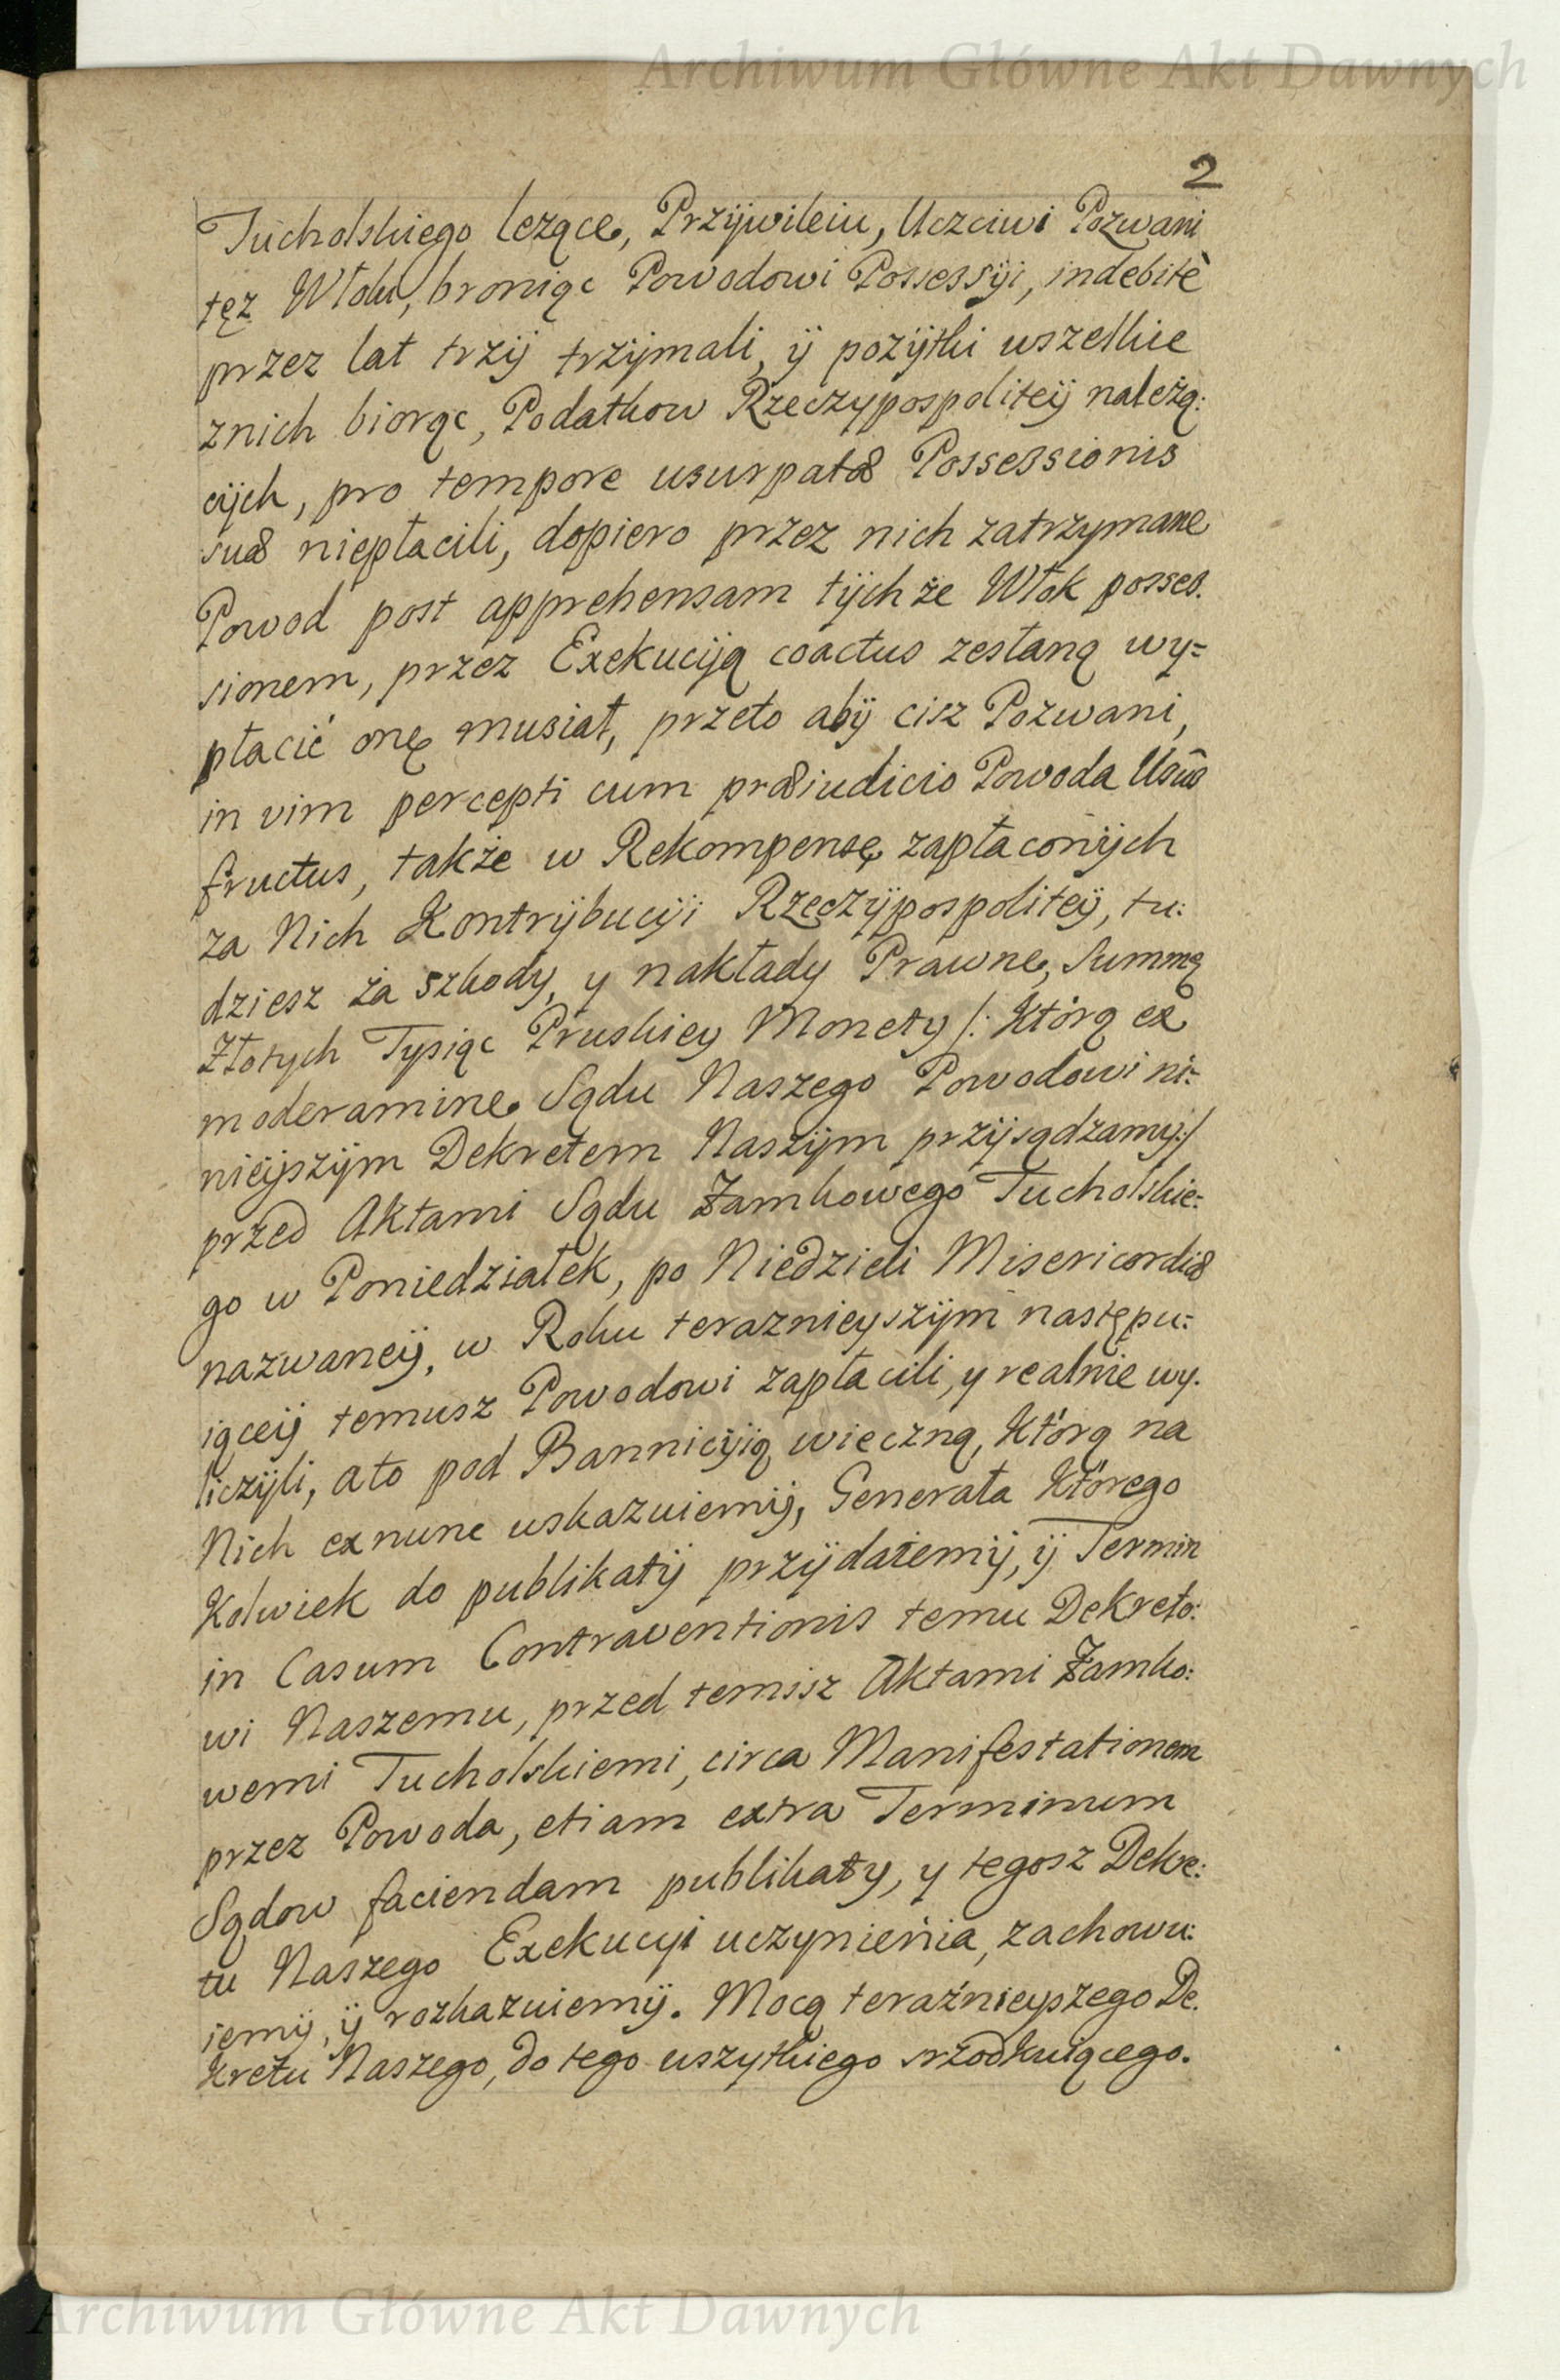 Archiwum Główne Akt Dawnych
2
Tucholskiego leżące, Przÿwileiu, Uczciwi Pozwani
tęż Włoki, broniąc Powodowi Possessÿi, indebitè
przez lat trzÿ trzÿmali, ÿ pożÿtki wszelkie
znich biorąc, Podatkow Rzeczypospoliteÿ należą:
cÿch, pro tempore usurpatæ Possessionis
suæ niepłacili, dopiero przez nich zatrzymane
Powod post apprehensam tÿchże Włok posses.
sionem, przez Exekucÿą coactus zesłaną wy=
płacić onę musiał, przeto abÿ cisz Pozwani,
in vim percepti cum præiudicio Powoda Usûs
fructus, także w Rekompensę zapłaconÿch
za Nich Kontrÿbucÿi Rzeczÿpospoliteÿ, tu:
dziesz za szkody, y nakłady Prawne, Summę
Złotych Tysiąc Pruskiey Monety /: Którą ex
moderamine Sądu Naszego Powodowi ni:
nieÿszÿm Dekretem Naszÿm przÿsądzamy:/
przed Aktami Sądu Zamkowego Tucholskie:
go w Poniedziałek, po Niedzieli Misericordiæ
nazwaneÿ, w Roku teraznieyszÿm następu:
iąceÿ temusz Powodowi zapłacili, y realnie wy.
liczÿli, ato pod Bannicÿią wieczną, Którą na
Nich exnunc wskazuiemÿ, Generała Którego
Kolwiek do publikatÿ przÿdaiemÿ, ÿ Termin
in Casum Contraventionis temu Dekreto:
wi Naszemu, przed temisz Aktami Zamko:
wemi Tucholskiemi, circa Manifestationem
przez Powoda, etiam extra Terminum
Sądow faciendam publikaty, y tegosz Dekre:
tu Naszego Exekucyi uczynienia, zachowu:
iemÿ, ÿ rozkazuiemÿ. Mocą teraźnieyszego De.
Kretu Naszego, do tego wszytkiego srzodkuiącego.
Archiwum Główne Akt Dawnych